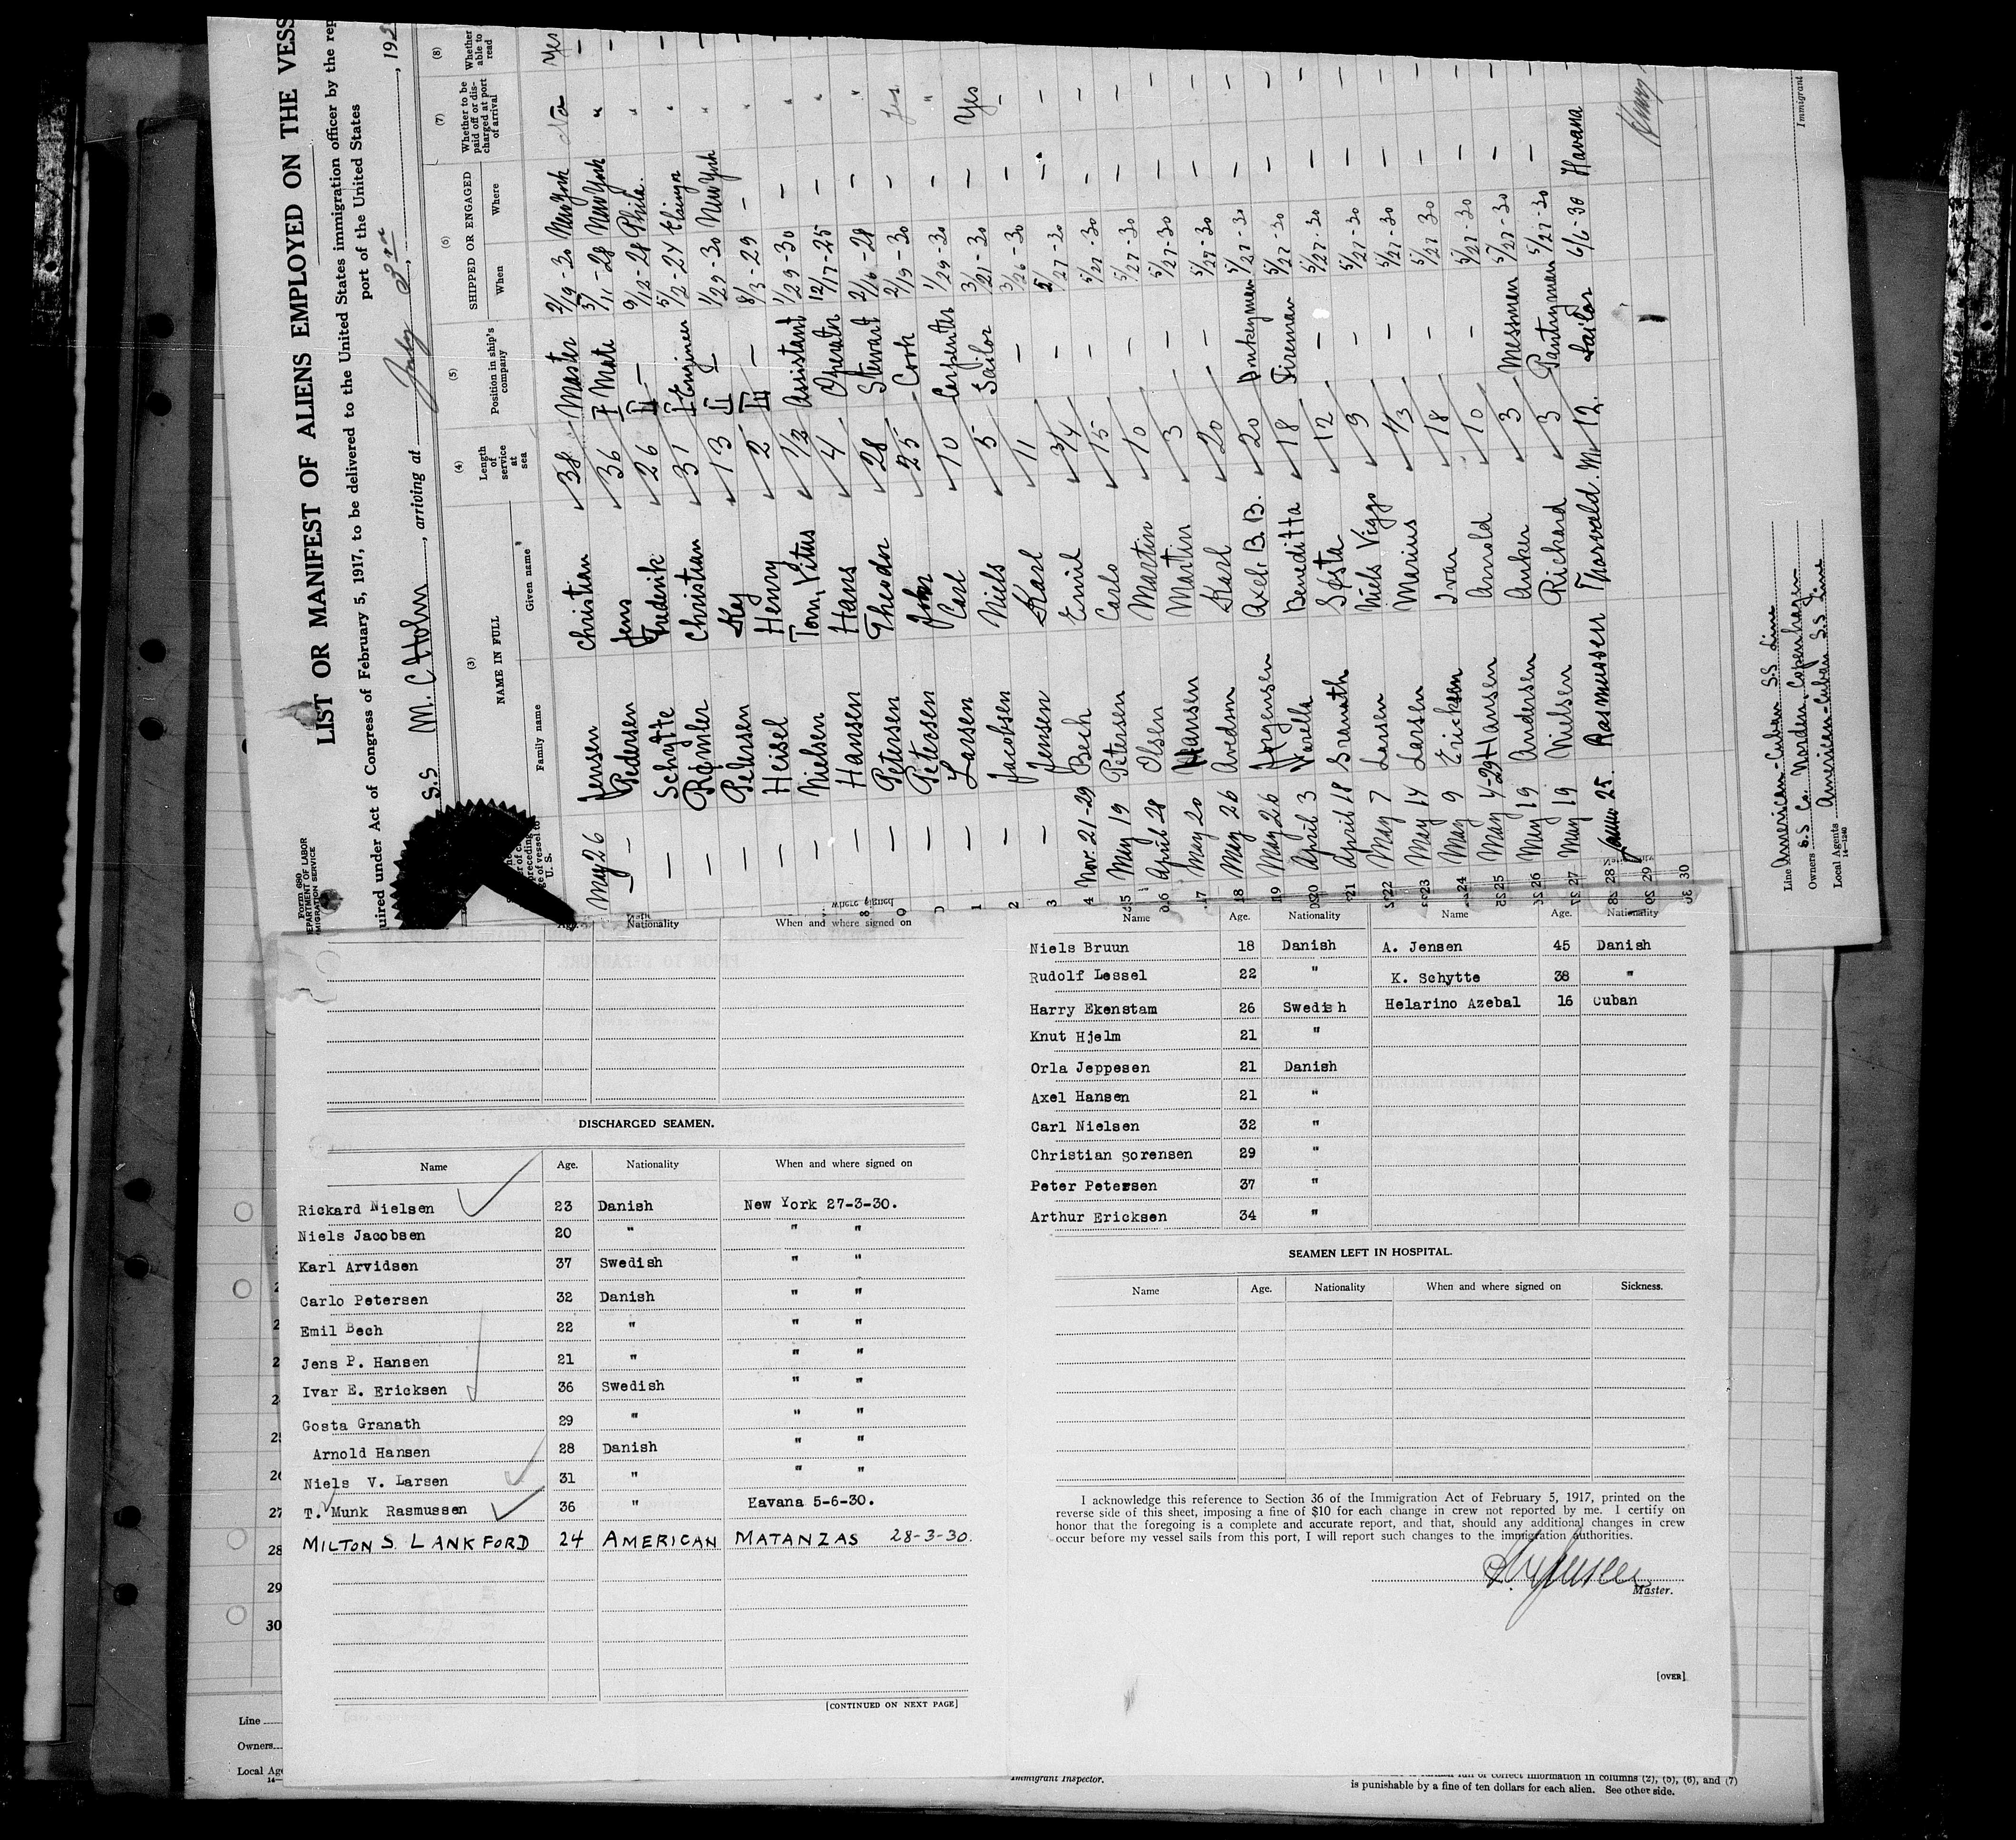 Form 680
LIST OR MANIFEST OF ALIENS EMPLOYED ON THE VESS
uired under Act of Congress of February 5, 1917, to be delivered to the United States immigration officer by the rep
port of the United States
S.S M. C. Holm, arriving at July 3rd, 192
(3) (4) (5) (6) (7) (8)
NAME IN FULL
Family name Given name
Length of service at sea
Position in ship's company
SHIPPED OR ENGAGED
When Where
Whether to be paid off or discharged at port of arrival
Whether able to read
May 26 Jensen Christian 38 Master 2/19-30 New York Yes
— Pedersen Jens 36 I Mate 3/11-28 New York " —
— Schytte Frederik 26 II — 9/12-28 Phila. " —
— Rømler Christian 31 I Engineer 5/2-24 "
— Petersen Kaj 13 II — 1/29-30 New York "
— Heisel Henry 2 III — 8/3-29 — "
— Nielsen Tom, Vitus 1/2 Assistant 1/29-30 — "
— Hansen Hans 4 Operator 12/17-25 — "
— Petersen Theodor 28 Stewart 2/16-28 — "
— Petersen John 25 Cook 2/19-30 — Yes
— Larsen Carl 10 Carpenter 1/29-30 — "
— Jacobsen Niels 5 Sailor 3/21-30 — Yes
— Jensen Karl 11 — 3/26-30 — —
Nov. 21-29 Bech Emil 3/4 — 5/27-30 — —
May 19 Petersen Carlo 15 — 5/27-30 — —
April 28 Olsen Martin 10 — 5/27-30 — —
May 20 Hansen Martin 3 — 5/27-30 — —
May 26 Karl 20 — 5/27-30 — —
May 26 Jørgensen Axel B. B. 20 Donkeyman 5/27-30 — —
April 3 Varella Beneditta 18 Fireman 5/27-30 — —
April 18 Gøsta 12 — 5/27-30 — —
May 7 Larsen Niels Viggo 9 — 5/27-30 — —
May 14 Larsen Marius 1/3 — 5/27-30 — —
May 9 Ericksen Ivar 18 — 5/27-30 — —
May 4-29 Hansen Arnold 10 — 5/27-30 — —
May 19 Andersen Anker 3 Messman 5/27-30 — —
May 19 Nielsen Rickard 3 Pantryman 5/27-30 — —
25. Rasmussen Thorvald. M. 12. Sailor 6/6-30 Havana
Line American-Cuban S.S Line
Owners S.S Co. Norden, Copenhagen
Local Agents American-Cuban S.S Line
14-1240
Immigrant
Age. Nationality When and where signed on
DISCHARGED SEAMEN.
Name Age. Nationality When and where signed on
Rickard Nielsen 23 Danish New York 27-3-30.
Niels Jacobsen 20 " " "
Karl Arvidsen 37 Swedish " "
Carlo Petersen 32 Danish " "
Emil Bech 22 " " "
Jens P. Hansen 21 " " "
Ivar E. Ericksen 36 Swedish " "
Gosta Granath 29 " " "
Arnold Hansen 28 Danish " "
Niels V. Larsen 31 " " "
T. Munk Rasmussen 36 " Havana 5-6-30.
MILTON S. LANKFORD 24 AMERICAN MATANZAS 28-3-30.
[CONTINUED ON NEXT PAGE]
Name Age. Nationality Name Age. Nationality
Niels Bruun 18 Danish A. Jensen 45 Danish
Rudolf Lessel 22 " K. Schytte 38 "
Harry Ekenstam 26 Swedish Helarino Azebal 16 Cuban
Knut Hjelm 21 "
Orla Jeppesen 21 Danish
Axel Hansen 21 "
Carl Nielsen 32 "
Christian Sorensen 29 "
Peter Petersen 37 "
Arthur Ericksen 34 "
SEAMEN LEFT IN HOSPITAL.
Name Age. Nationality When and where signed on Sickness.
I acknowledge this reference to Section 36 of the Immigration Act of February 5, 1917, printed on the
reverse side of this sheet, imposing a fine of $10 for each change in crew not reported by me. I certify on
honor that the foregoing is a complete and accurate report, and that, should any additional changes in crew
occur before my vessel sails from this port, I will report such changes to the immigration authorities.
Master.
[OVER]
27
28
29
30
Line
Owners
Local Age
Immigrant Inspector.
correct information in columns (2), (5), (6), and (7)
is punishable by a fine of ten dollars for each alien. See other side.